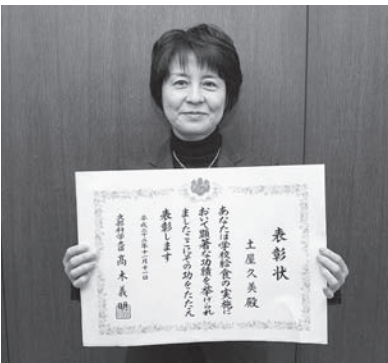 表彰状
土屋久美殿
あなたは学校給食の実施に
おいて顕著な功績を挙げられ
ましたここにその功をたたえ
表彰します
平成二十二年十一月十一日
文部科学大臣 髙木義明